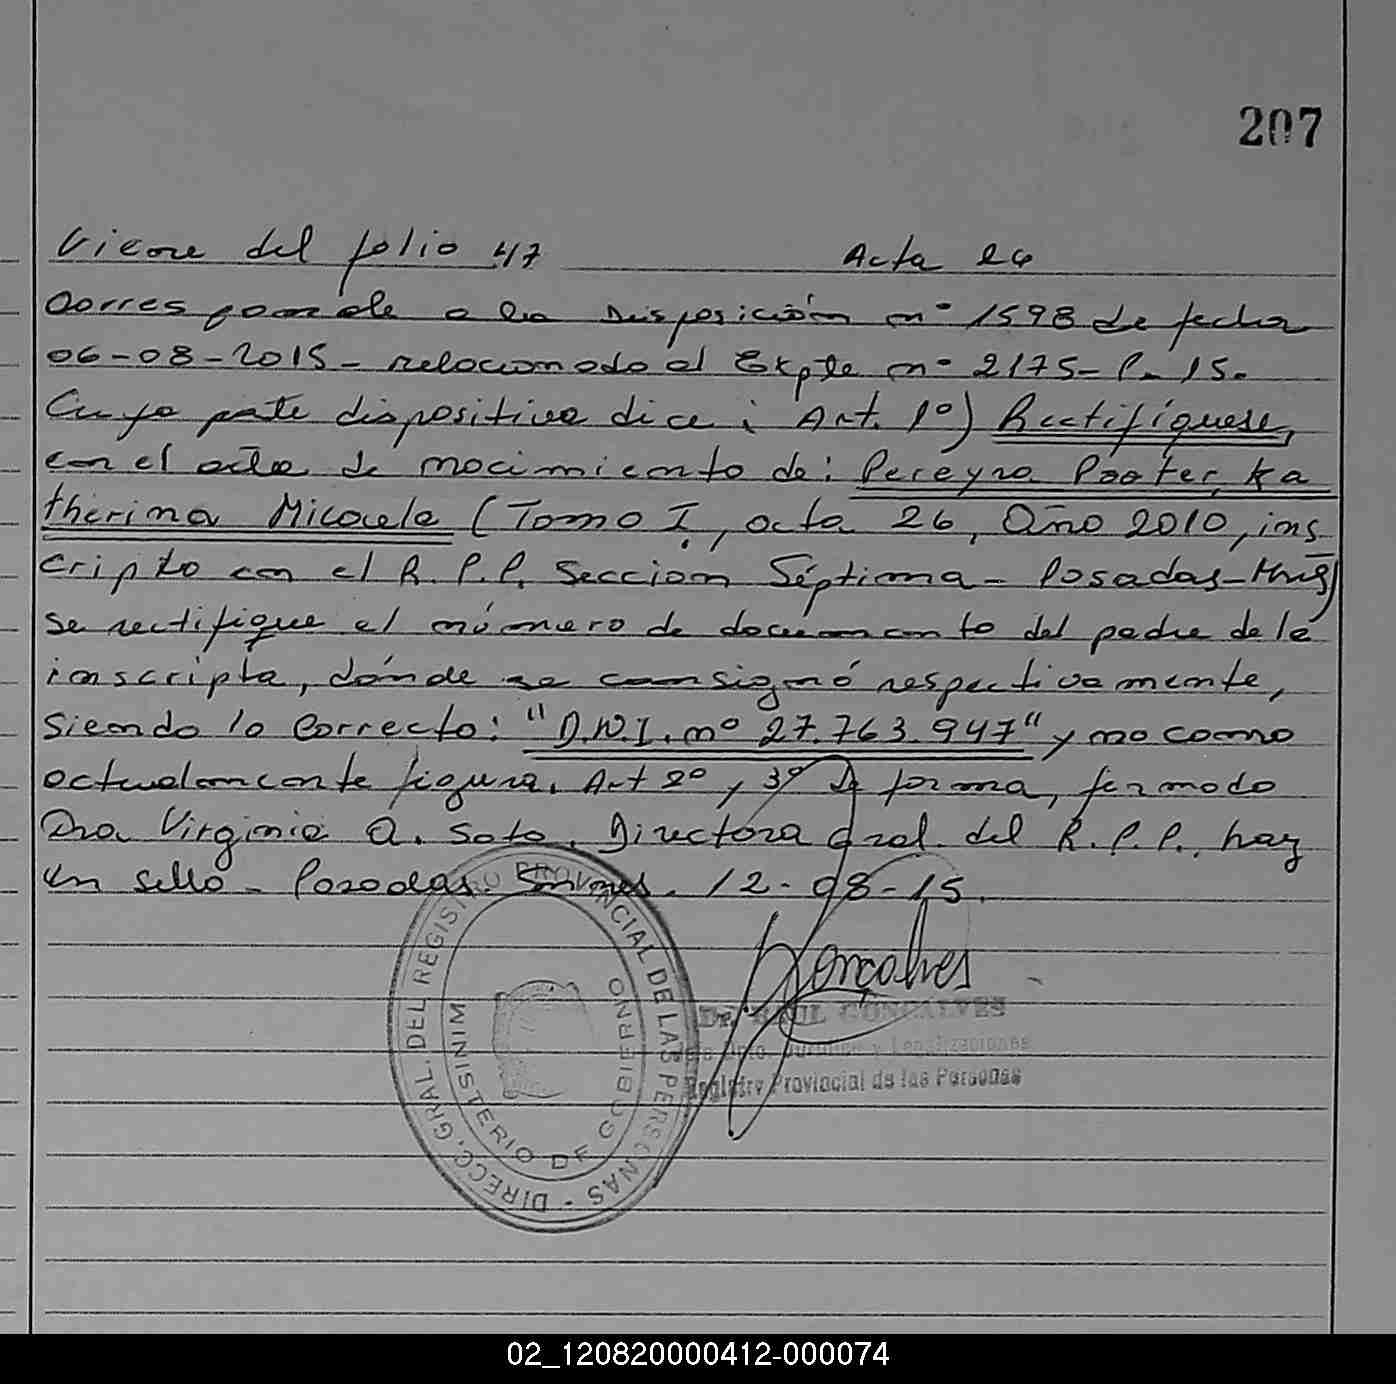 207
Viene del folio 47 Acta 26
Corresponde a la Disposición nº 1598 de fecha
06-08-2015- relacionado al Expte nº 2175-P-15.
Cuya parte dispositiva dice: Art. 1º) Rectifíquese,
en el acta de nacimiento de: Pereyra Paoter, Ka
therina Micaela (Tomo I, acta 26, Año 2010, ins
cripto en el R.P.P. Seccion Séptima- Posadas-Mnes)
se rectifique el número de documento del padre de la
inscripta, dónde se consignó respectivamente,
siendo lo correcto: "D.N.I. nº 27.763.947" y no como
actualmente figura. Art 2º, 3º De forma, firmado
Dra Virginia A. Soto. Directora Gral. del R.P.P., hay
un sello- Posadas. Misiones. 12-08-15.
DIRECC. GRAL. DEL REGISTRO PROVINCIAL DE LAS PERSONAS -
MINISTERIO DE GOBIERNO
Gonçalves
Dr. RAUL GONÇALVES
Jefe Dpto. Jurídico y Legalizaciones
Registro Provincial de las Personas
02_120820000412-000074